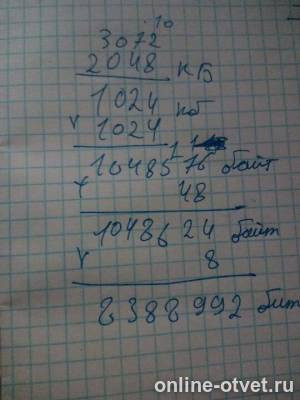 10
3072
2048 кБ
1024 кб
× 1024
1048576 байт
+ 48
1048624 байт
× 8
8388992 бит
online-otvet.ru